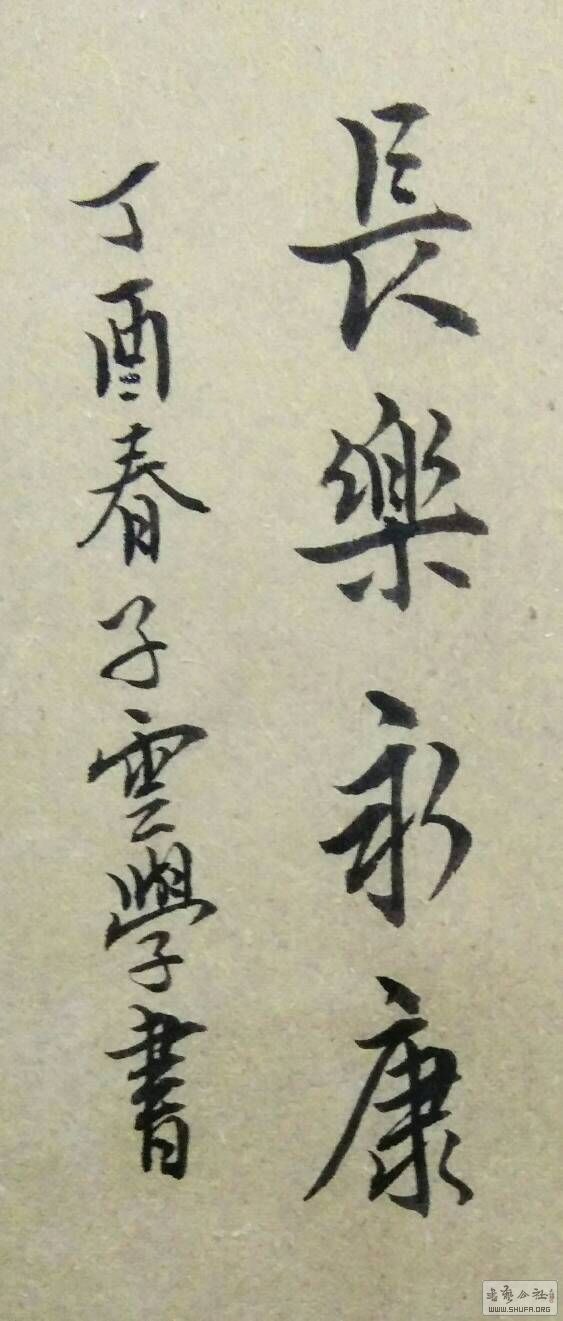 長樂永康
丁酉春子雲學書
書藝公社
WWW.SHUFA.ORG